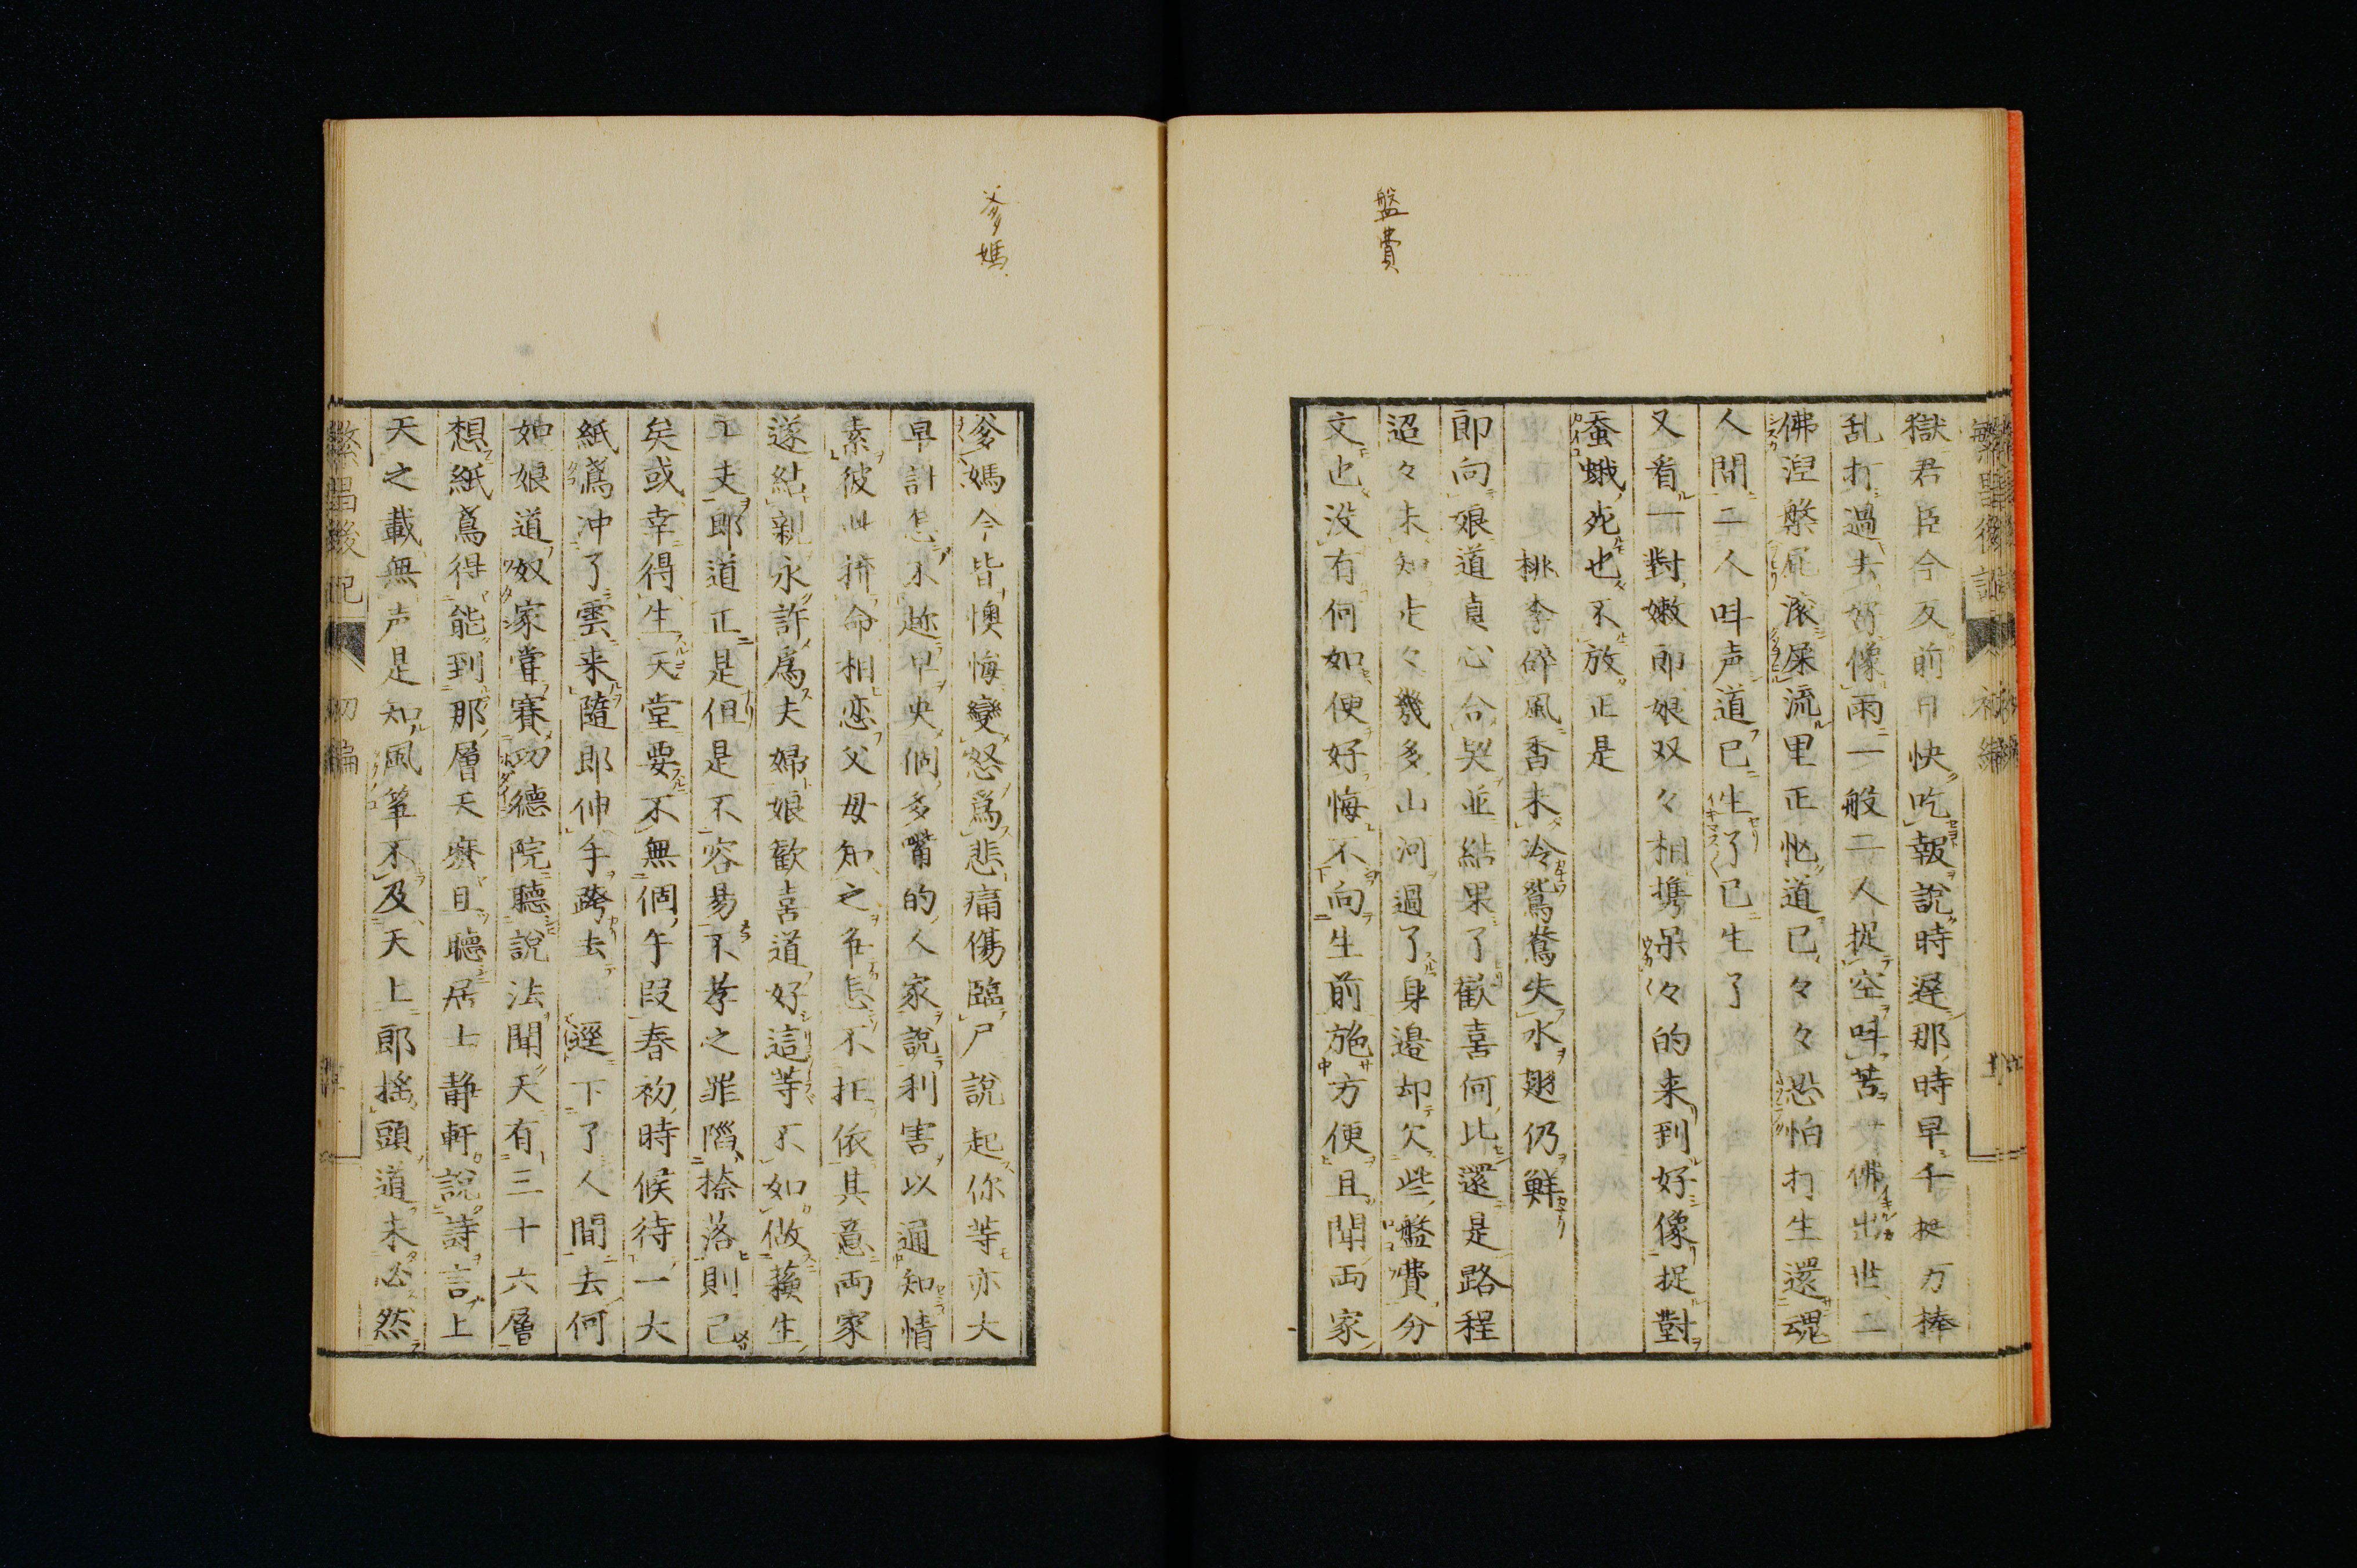 盤費
獄君臣今反前日快吃報說時遲那時早千挺万棒
乱打過去好像雨一般二人捉空呌苦佛出世二
佛涅槃屁滾屎流里正怹道已々々恐怕打生還魂
人間二人呌声道已生了已生了
又看一對嫩郎娘双々相携呆々的来到好像捉對
蚕蛾死也不放正是
桃李碎風香未冷鴛鴦失水翅仍鮮
即向娘道貞心合哭並結果了歡喜何比還是路程
迢々未知步々幾多山河過了身邉却欠些盤費分
文也没有何如便好悔不向生前施方便且聞両家
爹媽
爹媽今皆懊悔變怒為悲痛傷臨尸說起你等亦大
早計怎不趂早央個多嘴的人家說利害以通知情
素彼此擠命相恋父母知之在怎不抂依其意両家
遂結親永許為夫婦娘歡喜道好這等不如做蘋生
工夫郎道正是但是不容易不孝之罪陷捺落則已
矣或幸得生天堂要不無個午段春初時候待一大
紙鳶冲了雲来隨郎伸手跨去逕下了人間去何
如娘道奴家嘗賽功德院聽說法聞天有三十六層
想紙鳶得能到那層天麼且聽居士静軒說詩言上
天之載無声是知風筝不及天上郎搖頭道未必然
繁昌後記
初編